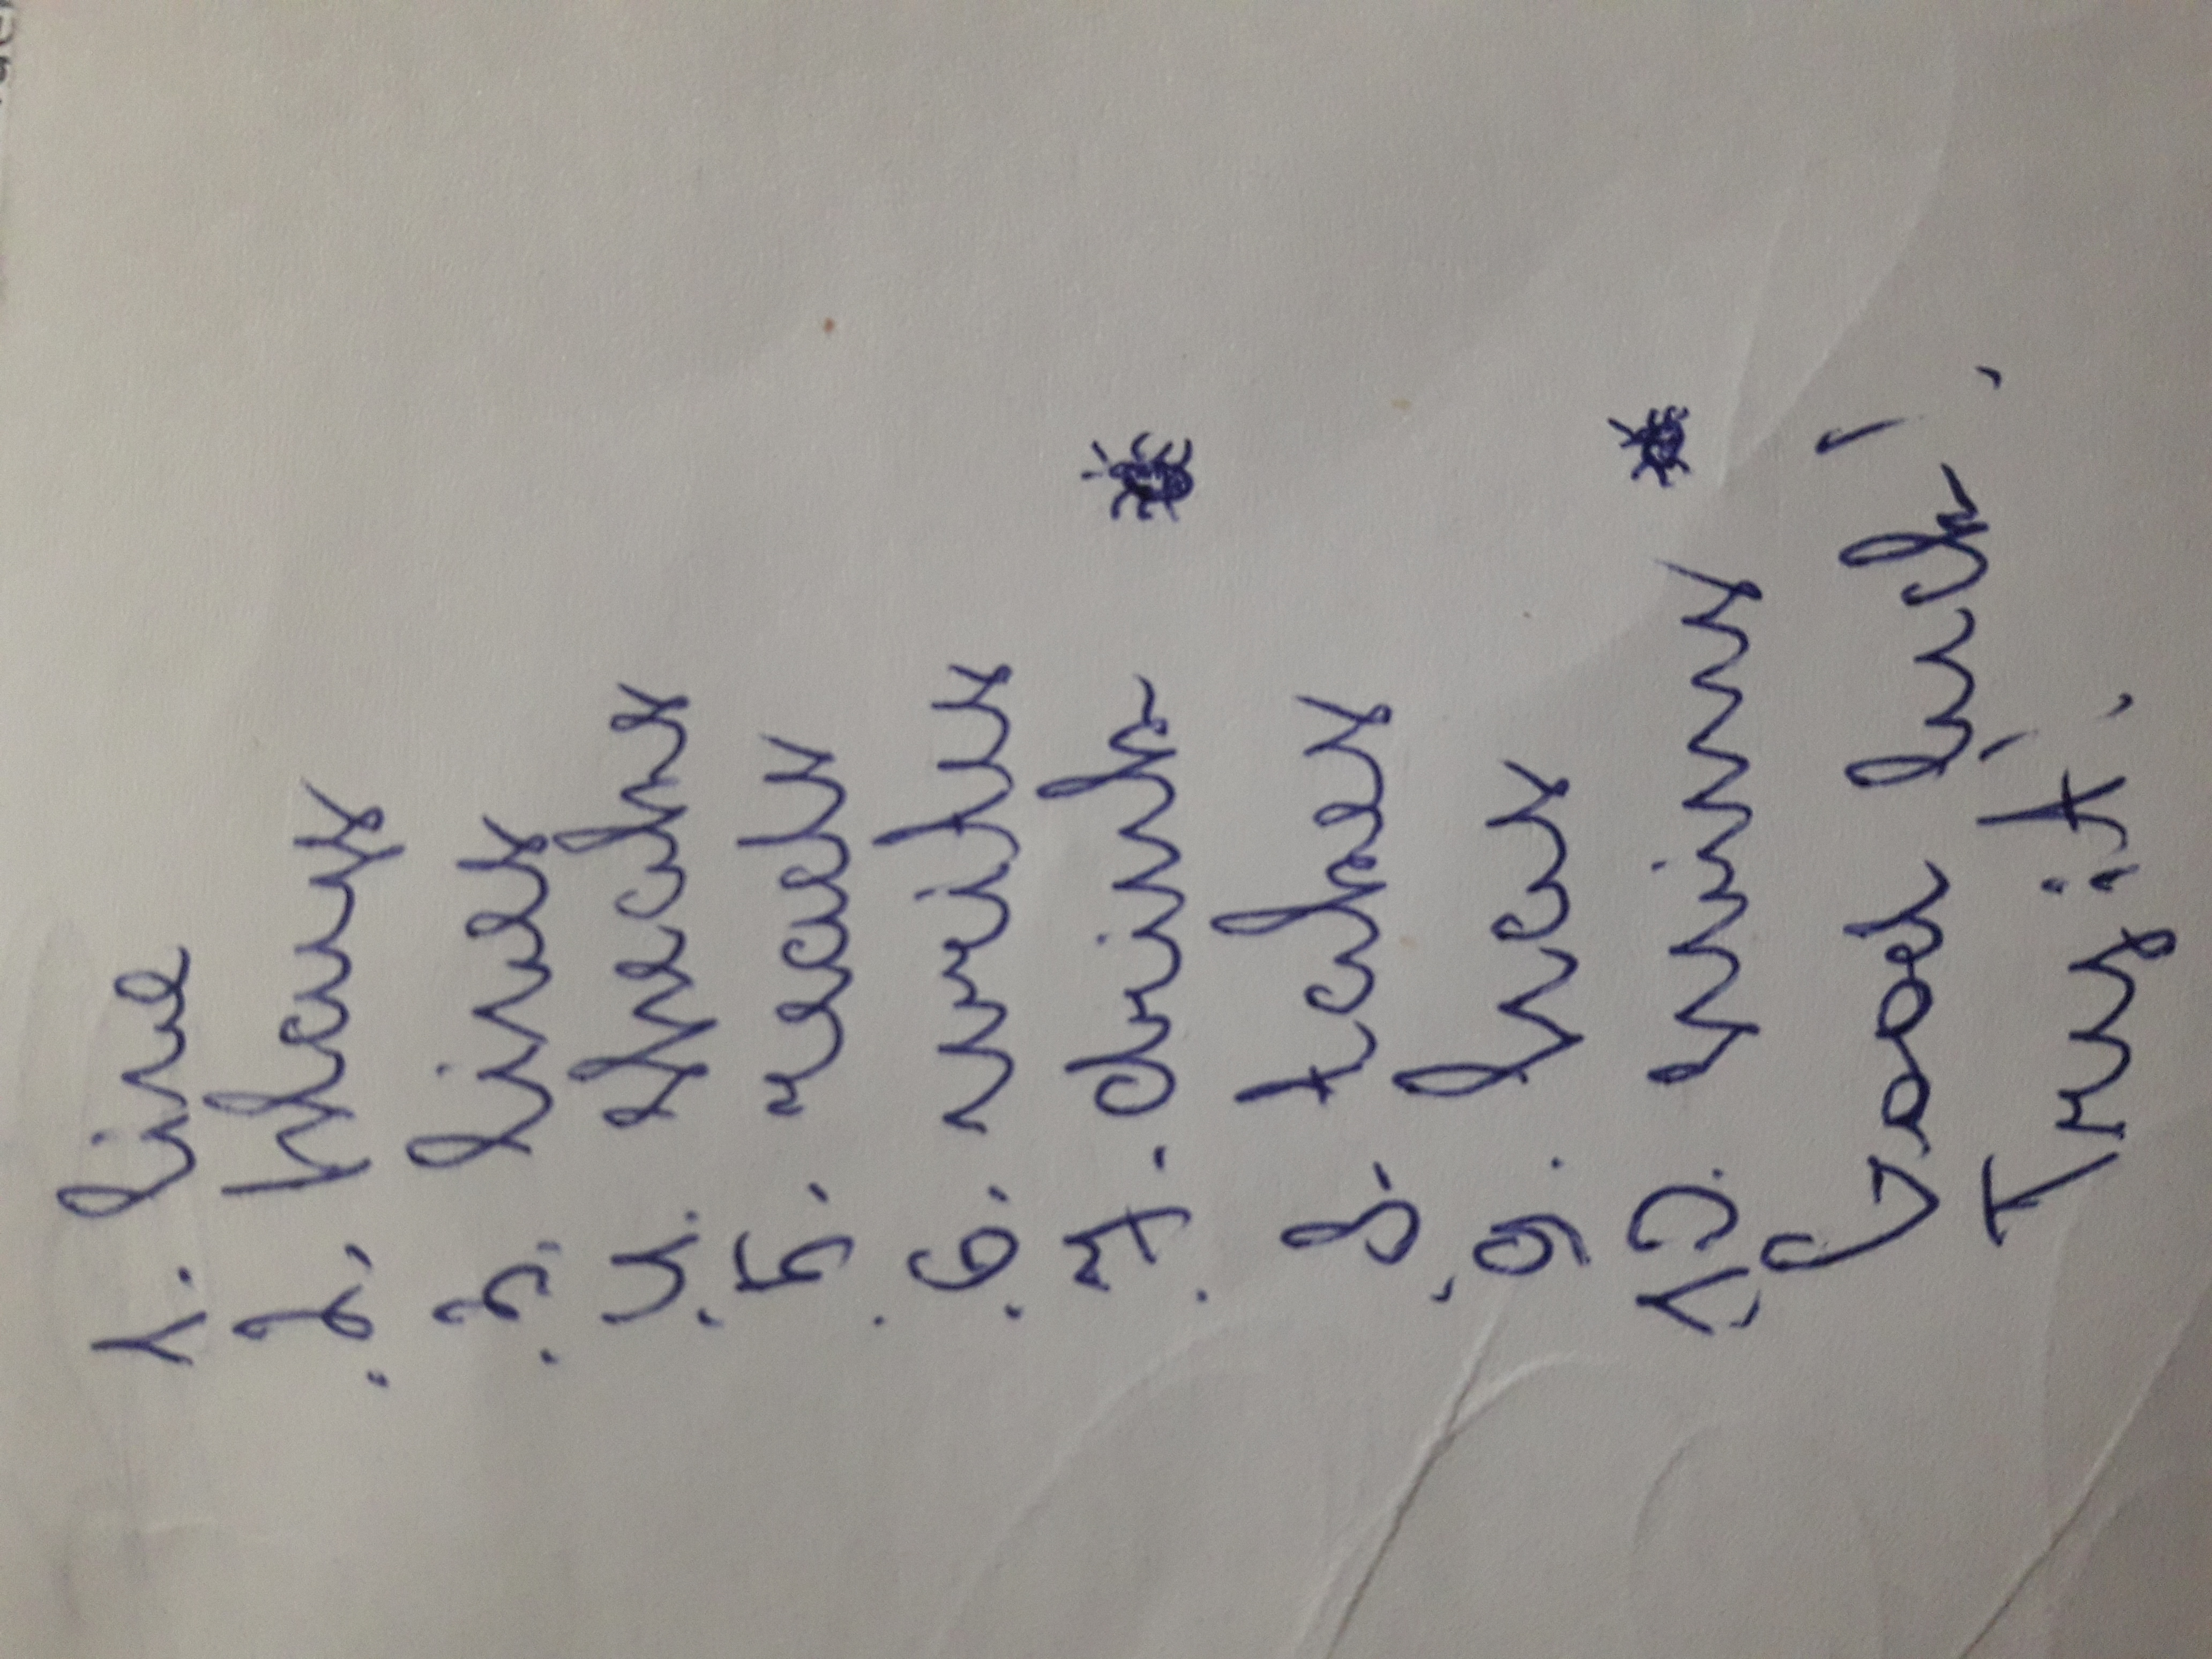 1. live
2. plays
3. lives
4. speaks
5. reads
6. writes
7. drink
8. takes
9.
10.
Good luck!
Try it!